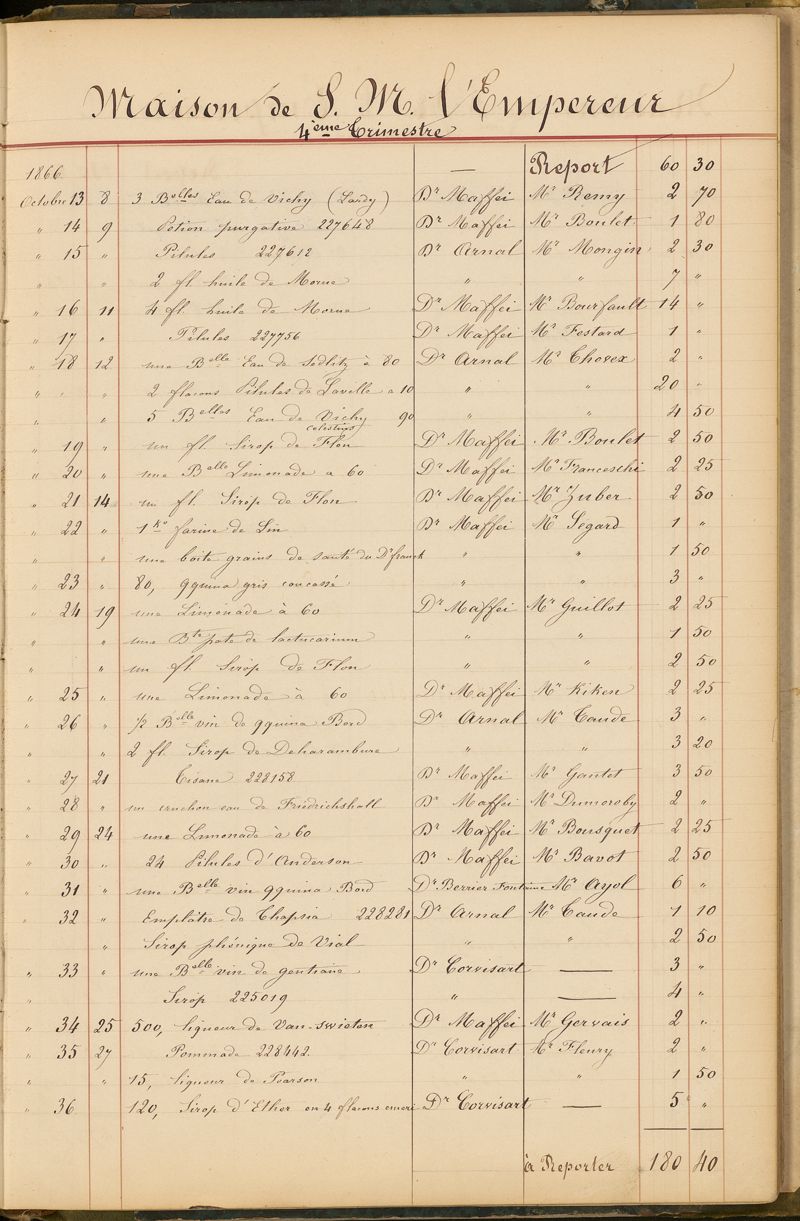 Maison de S. M. l'Empereur
4ème Trimestre
1866 — Report 60 30
Octobre 13 8 3 Blles Eau de Vichy (Lardy) Dr Maffei Mr Remy 2 70
" 14 9 Potion purgative 227648 Dr Maffei Mr Boulet 1 80
" 15 " Pilules 227612 Dr Arnal Mr Mongin 2 30
" " 2 fl. huile de Morue " " 7 "
" 16 11 4 fl. huile de Morue Dr Maffei Mr Bourfault 14 "
" 17 " Pilules 227756 Dr Maffei Mr Festard 1 "
" 18 12 une Blle Eau de Sedlitz à 80 Dr Arnal Mr Chovex 2 "
" " " 2 flacons Pilules de Lavelle a 10 " " 20 "
" " 5 Blles Eau de Vichy 90 " " 4 50
celestins
" 19 " un fl. Sirop de Flon Dr Maffei Mr Boulet 2 50
" 20 " une Blle Limonade a 60 Dr Maffei Mr Franceschi 2 25
" 21 14 un fl. Sirop de Flon Dr Maffei Mr Zuber 2 50
" 22 " 1 ko farine de Lin Dr Maffei Mr Segard 1 "
" " une boite grains de santé du Dr franck " " 1 50
" 23 " 80, qquina gris concassé " " 3 "
" 24 19 une Limonade à 60 Dr Maffei Mr Guillot 2 25
" " une Bte pate de lactucarium " " 1 50
" " un fl. Sirop de Flon " " 2 50
" 25 " une Limonade à 60 Dr Maffei Mr Kiken 2 25
" 26 " ½ Blle vin de qquina Bord Dr Arnal Mr Caude 3 "
" " 2 fl. Sirop de Deharambure " " 3 20
" 27 21 Tisane 228158 Dr Maffei Mr Gautet 3 50
" 28 " un cruchon eau de Friedrichshall Dr Maffei Mr Dumoroby 2 "
" 29 24 une Limonade à 60 Dr Maffei Mr Bousquet 2 25
" 30 " 24 Pilules d'Anderson Dr Maffei Mr Bavot 2 50
" 31 " une Blle vin qquina Bord Dr Berrier Fontaine Mr Ayol 6 "
" 32 " Emplâtre de Thapsia 228281 Dr Arnal Mr Caude 1 10
" Sirop phénique de Vial " " 2 50
" 33 " une Blle vin de gentiane Dr Corvisart — 3 "
" Sirop 225019 " — 4 "
" 34 25 500, liqueur de Van-swieten Dr Maffei Mr Gervais 2 "
" 35 27 Pommade 228442 Dr Corvisart Mr Fleury 2 "
" " 15, liqueur de Pearson " " 1 50
" 36 120, Sirop d'Ether en 4 flacons emeri Dr Corvisart — 5 "
à Reporter 180 40